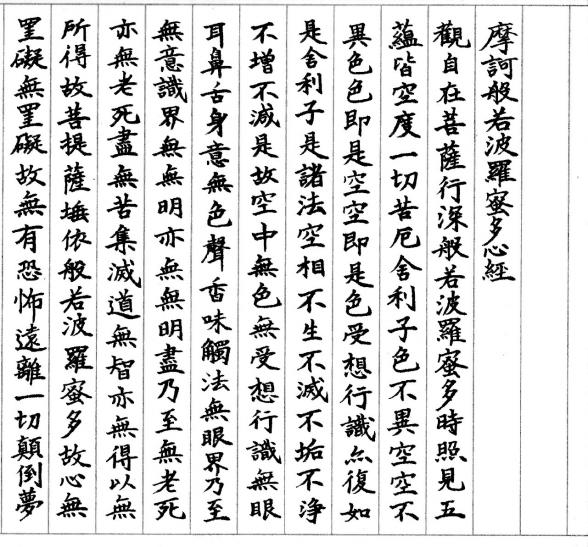 摩訶般若波羅蜜多心經
觀自在菩薩行深般若波羅蜜多時照見五
蘊皆空度一切苦厄舍利子色不異空空不
異色色即是空空即是色受想行識亦復如
是舍利子是諸法空相不生不滅不垢不淨
不增不減是故空中無色無受想行識無眼
耳鼻舌身意無色聲香味觸法無眼界乃至
無意識界無無明亦無無明盡乃至無老死
亦無老死盡無苦集滅道無智亦無得以無
所得故菩提薩埵依般若波羅蜜多故心無
罣礙無罣礙故無有恐怖遠離一切顛倒夢